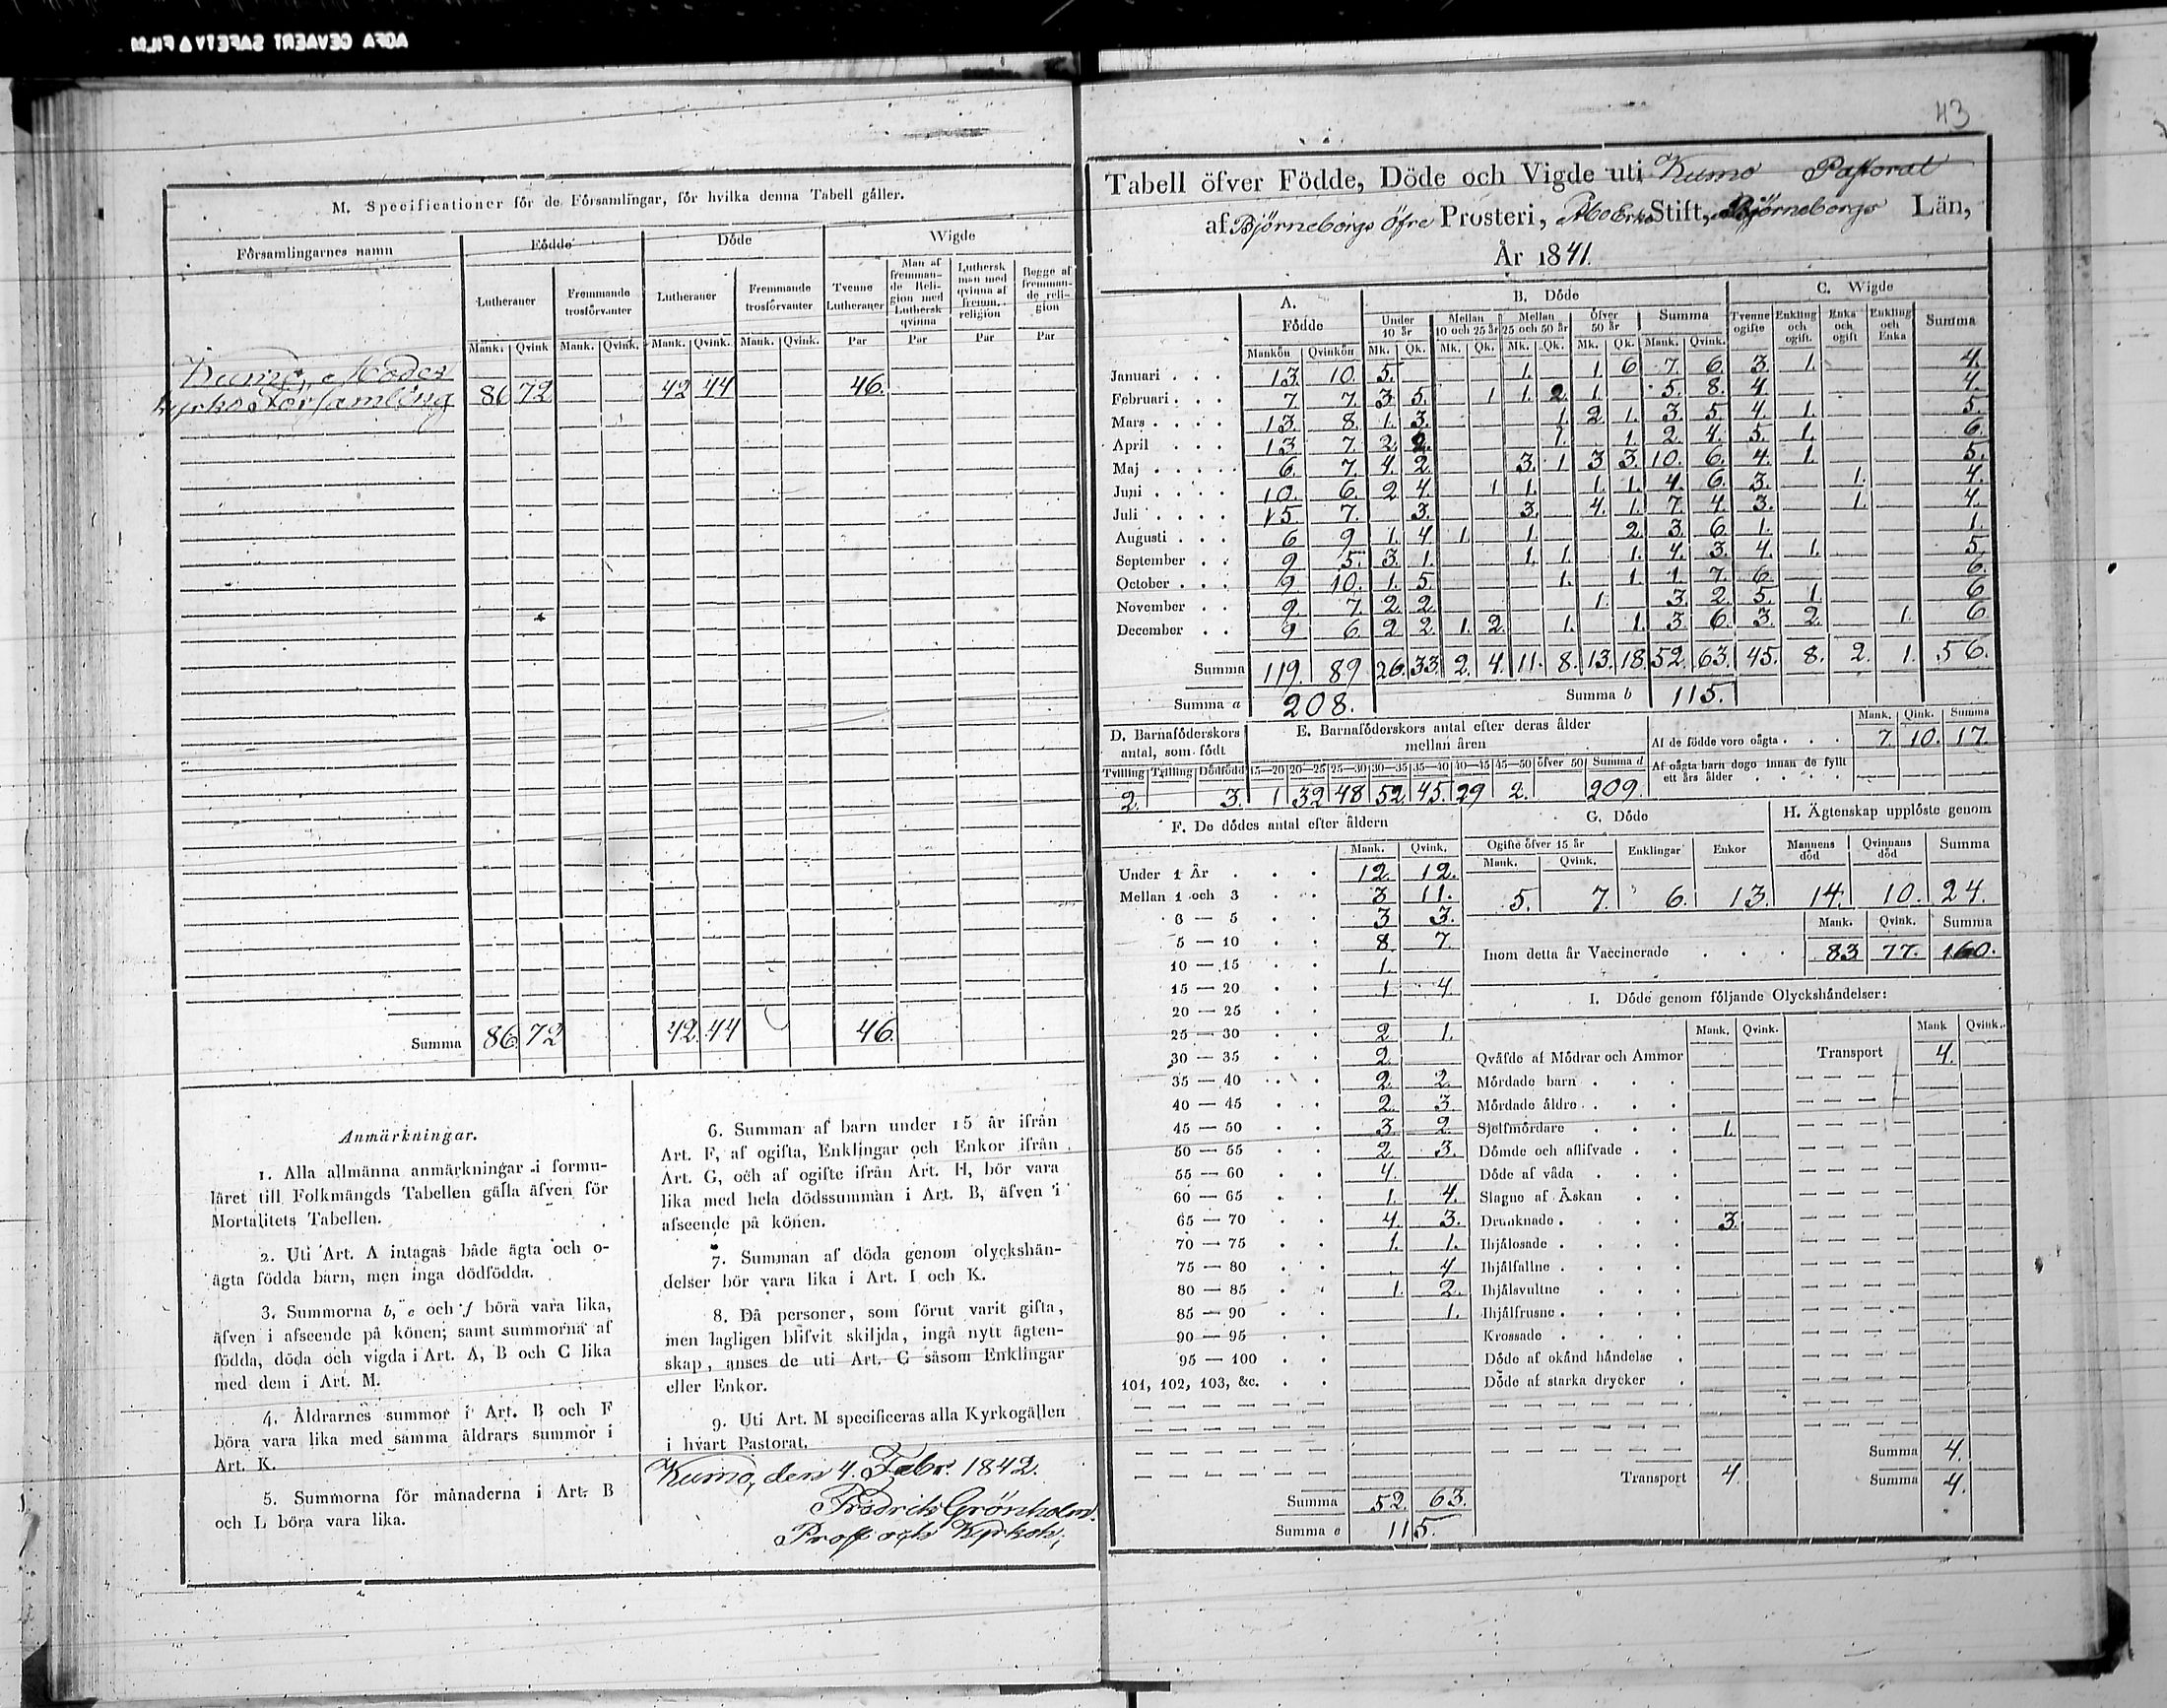 AGFA GEVAERT SAFETY FILM
M. Specificationer för de Församlingar, för hvilka denna Tabell gäller.
Församlingarnes namn | Födde | Döde | Wigde
Lutheraner | Fremmande trosförvanter | Lutheraner | Fremmande trosförvanter | Tvenne Lutheraner | Man af fremmande Religion med Luthersk qvinna | Luthersk man med qvinna af fremm. religion | Begge af fremmande religion
Mank. | Qvink | Mank. | Qvink. | Mank. | Qvink. | Mank. | Qvink. | Par | Par | Par | Par
Kumo, Moder
kyrko Församling 86 72 42 44 46.
Summa 86. 72 42. 44 46.
Anmärkningar.
1. Alla allmänna anmärkningar i formu-
läret till Folkmängds Tabellen gälla äfven för
Mortalitets Tabellen.
2. Uti Art. A intagas både ägta och o-
ägta födda barn, men inga dödfödda.
3. Summorna b, e och f böra vara lika,
äfven i afseende på könen; samt summorna af
födda, döda och vigda i Art. A, B och C lika
med dem i Art. M.
4. Åldrarnes summor i Art. B och F
böra vara lika med samma åldrars summor i
Art. K.
5. Summorna för månaderna i Art. B
och L böra vara lika.
6. Summan af barn under 15 år ifrån
Art. F, af ogifta, Enklingar och Enkor ifrån
Art. G, och af ogifte ifrån Art. H, bör vara
lika med hela dödssumman i Art. B, äfven i
afseende på könen.
7. Summan af döda genom olyckshän-
delser bör vara lika i Art. I och K.
8. Då personer, som förut varit gifta,
men lagligen blifvit skiljda, ingå nytt ägten-
skap, anses de uti Art. C såsom Enklingar
eller Enkor.
9. Uti Art. M specificeras alla Kyrkogällen
i hvart Pastorat.
Kumo, den 4. Febr. 1842.
Fredrik Grönholm.
Prost och Kyrkoh.
43
Tabell öfver Födde, Döde och Vigde uti Kumo Pastorat
af Björneborgs Öfre Prosteri, Åbo Erke Stift, Björneborgs Län,
År 1841.
A. Födde | B. Döde | C. Wigde
Under 10 år | Mellan 10 och 25 år | Mellan 25 och 50 år | Öfver 50 år | Summa | Tvenne ogifte | Enkling och ogift. | Enka och ogift | Enkling och Enka | Summa
Mankön | Qvinkön | Mk. | Qk. | Mk. | Qk. | Mk. | Qk. | Mk. | Qk. | Mank. | Qvink.
Januari 13. 10. 5. 1. 1. 6 7. 6. 3. 1. 4.
Februari 7. 7. 3. 5. 1 1. 2. 1. 5. 8. 4. 4.
Mars 13. 8. 1. 3. 1. 2 1. 3. 5. 4. 1. 5.
April 13. 7. 2. 2. 1. 1. 2. 4. 5. 1. 6.
Maj 6. 7. 4. 2. 3. 1 3 3. 10. 6. 4. 1. 5.
Juni 10. 6. 2 4. 1 1. 1. 1. 4. 6. 3. 1. 4.
Juli 15. 7. 3. 3. 4. 1. 7. 4. 3. 1. 4.
Augusti 6 9 1. 4 1. 1. 2. 3. 6. 1. 1.
September 9 5. 3. 1. 1. 1. 1. 4. 3. 4. 1. 5.
October 9. 10. 1. 5. 1. 1. 1. 7. 6. 6.
November 9. 7. 2. 2. 1. 3. 2. 5. 1. 6
December 9 6. 2 2. 1. 2. 1. 1. 3 6. 3. 2. 1. 6
Summa 119. 89 26. 33. 2. 4. 11. 8. 13. 18. 52. 63. 45. 8. 2. 1. 56.
Summa a 208. Summa b 115.
D. Barnaföderskors antal, som födt | E. Barnaföderskors antal efter deras ålder mellan åren
Tvilling | Trilling | Dödfödd | 15—20 | 20—25 | 25—30 | 30—35 | 35—40 | 40—45 | 45—50 | öfver 50 | Summa d
2. 3. 1 32 48 52. 45. 29 2. 209.
Mank. | Qink. | Summa
Af de födde voro oägta 7. 10. 17.
Af oägta barn dogo innan de fyllt
ett års ålder
F. De dödes antal efter åldern
Mank. | Qvink.
Under 1 År 12. 12.
Mellan 1 och 3 3 11.
3 — 5 3 3.
5 — 10 8 7.
10 — 15 1.
15 — 20 1 4.
20 — 25
25 — 30 2 1.
30 — 35 2.
35 — 40 2. 2.
40 — 45 2. 3.
45 — 50 3. 2.
50 — 55 2 3.
55 — 60 4.
60 — 65 1. 4.
65 — 70 4. 3.
70 — 75 1. 1.
75 — 80 4
80 — 85 1. 2.
85 — 90 1.
90 — 95
95 — 100
101, 102, 103, &c.
Summa 52. 63.
Summa e 115.
G. Döde
Ogifte öfver 15 år | Enklingar | Enkor
Mank. | Qvink.
5. 7. 6. 13.
H. Ägtenskap upplöste genom
Mannens död | Qvinnans död | Summa
14. 10. 24.
Mank. | Qvink. | Summa
Inom detta år Vaccinerade 83 77. 160.
I. Döde genom följande Olyckshändelser:
Mank. | Qvink. | Mank | Qvink.
Qväfde af Mödrar och Ammor Transport 4.
Mördade barn
Mördade äldre
Sjelfmördare 1.
Dömde och aflifvade
Döde af våda
Slagne af Åskan
Drunknade 3.
Ihjälosade
Ihjälfallne
Ihjälsvultne
Ihjälfrusne
Krossade
Döde af okänd händelse
Döde af starka drycker
Summa 4.
Transport 4. Summa 4.